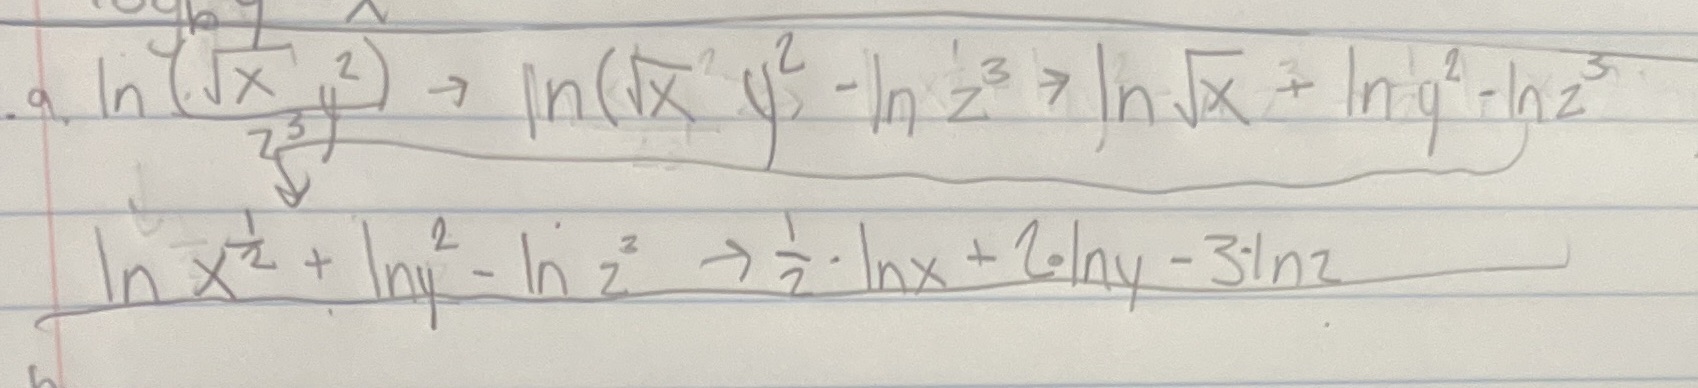 a. ln (√x y²) / z³ → ln(√x y² - ln z³ → ln √x + ln y² - ln z³
ln x^½ + ln y² - ln z³ → ½ · ln x + 2 · ln y - 3 · ln z